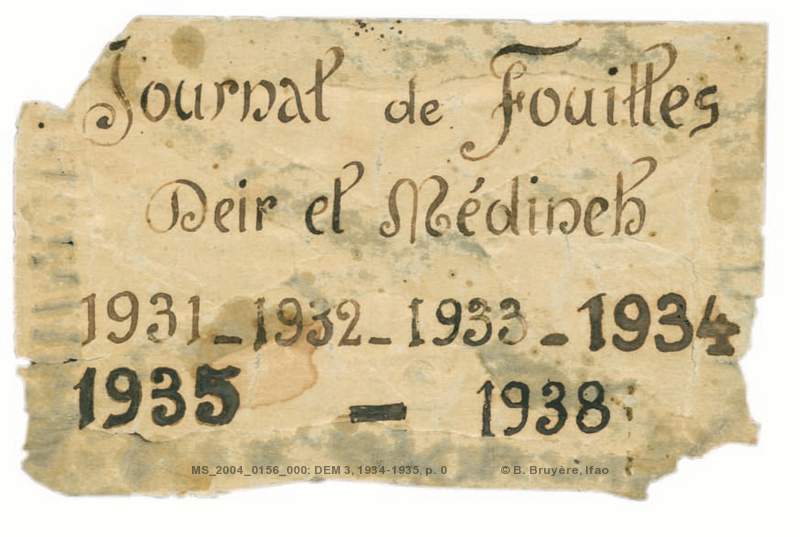 Journal de Fouilles
Deir el Médineh
1931_1932_1933_1934
1935 — 1938
MS_2004_0156_000; DEM 3, 1934-1935, p. 0 © B. Bruyère, Ifao